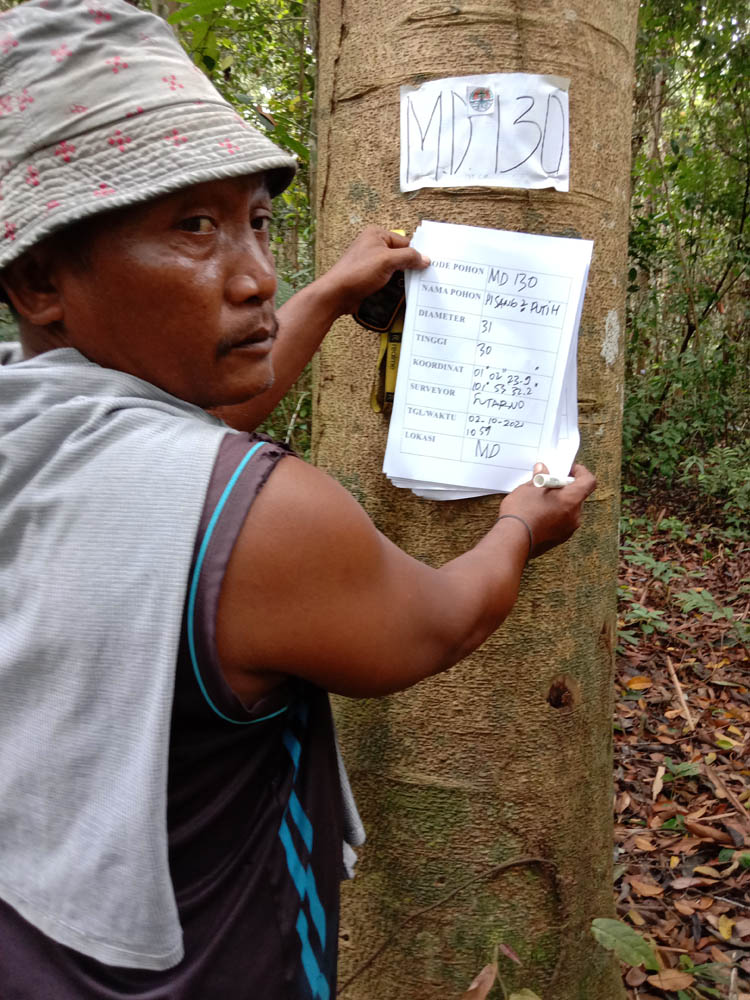 MD 130
KODE POHON MD 130
NAMA POHON PISANG2 PUTIH
DIAMETER 31
TINGGI 30
KOORDINAT 01° 02' 23.9"
101° 53' 32.2"
SURVEYOR SUTARNO
TGL/WAKTU 02-10-2021
10 59
LOKASI MD